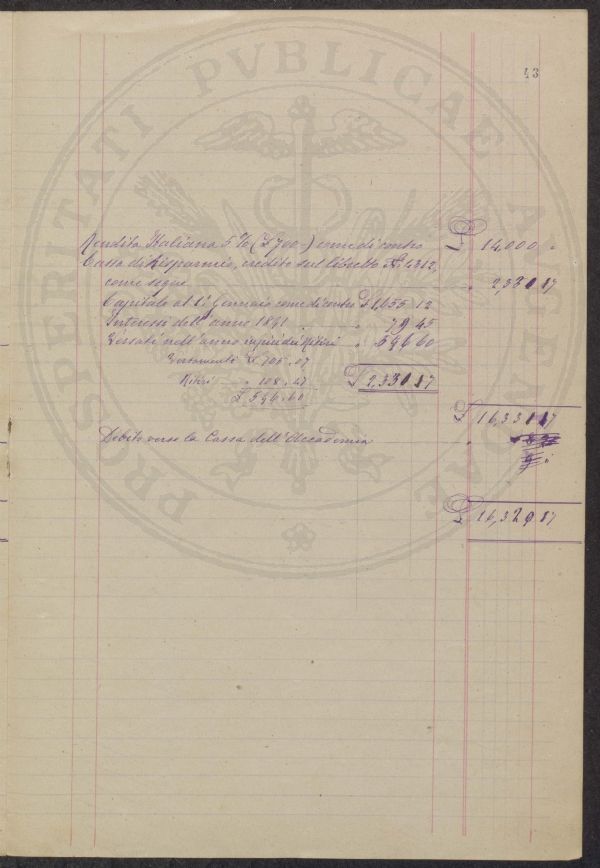 43
PROSPERITATI PVBLICAE AVGENDAE
Rendita Italiana 5% (£ 700 -) come di contro £ 14,000 "
Cassa di Risparmio, credito sul libretto N. 4312,
come segue " 2,331 17
Capitale al 1° Gennaio come di contro £ 1,655 12
Interessi dell'anno 1891 " 79 45
Versati nell'anno in più dei Ritiri " 596 60
Versamenti £ 705.07
Ritiri " 108.47 £ 2,331 17
£ 596.60
£ 16,331 17
Debito verso la Cassa dell'Accademia "
£ 16,329 17